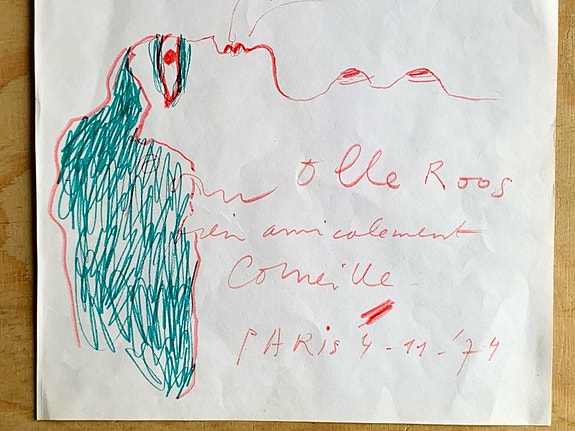 olle Roos
amicalement
Corneille
PARis 4-11-'74